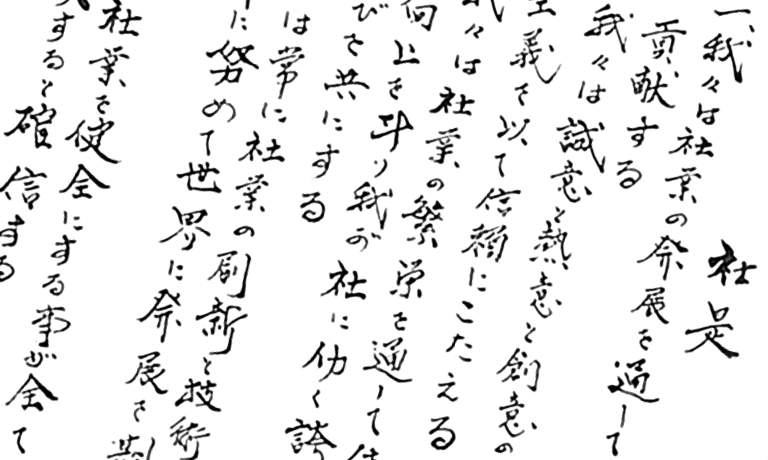 社是
一、我々は社業の発展を通して
貢献する
我々は誠意と熱意と創意の
主義を以て信頼にこたえる
我々は社業の繁栄を通して
向上を計り我が社に働く誇
びを共にする
は常に社業の刷新と技術
に努めて世界に発展を
社業を健全にする事が全て
すると確信する